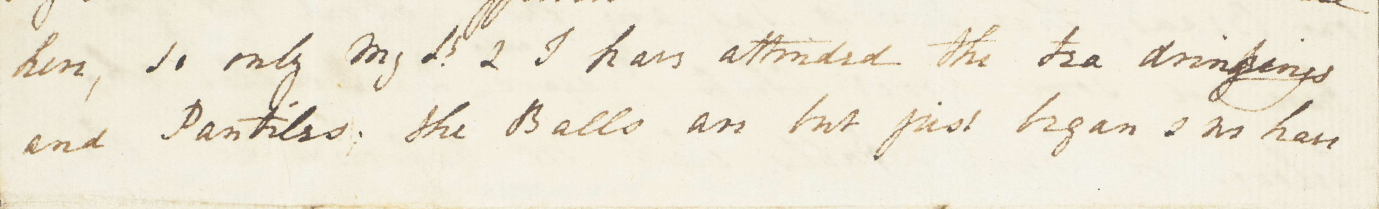 here, so only My Ld & I have attended the tea drinkings
and Pantiles. the Balls are but just began & we have